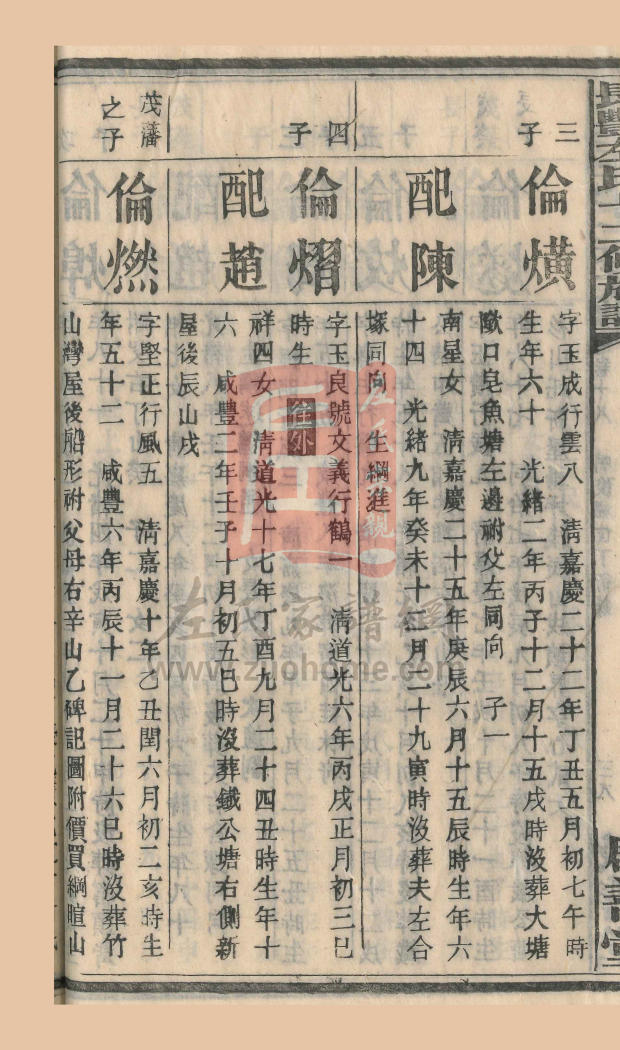 長豐左氏十二修族譜
三子
倫熿
字玉成行雲八 清嘉慶二十二年丁丑五月初七午時
生年六十 光緒二年丙子十二月十五戌時沒葬大塘
歐口皂魚塘左邊祔父左同向 子一
配陳
南星女 清嘉慶二十五年庚辰六月十五辰時生年六
十四 光緒九年癸未十二月二十九寅時沒葬夫左合
塚同向 生綱進
四子
倫熠
字玉良號文義行鶴一 清道光六年丙戌正月初三巳
時生 往外
配趙
祥四女 清道光十七年丁酉九月二十四丑時生年十
六 咸豐二年壬子十月初五巳時沒葬鐵公塘右側新
屋後辰山戌
茂藩之子
倫燃
字堅正行風五 清嘉慶十年乙丑閏六月初二亥時生
年五十二 咸豐六年丙辰十一月二十六巳時沒葬竹
山灣屋後船形祔父母右辛山乙碑記圖附價買綱暄山
左氏家譜網
www.zuohome.com